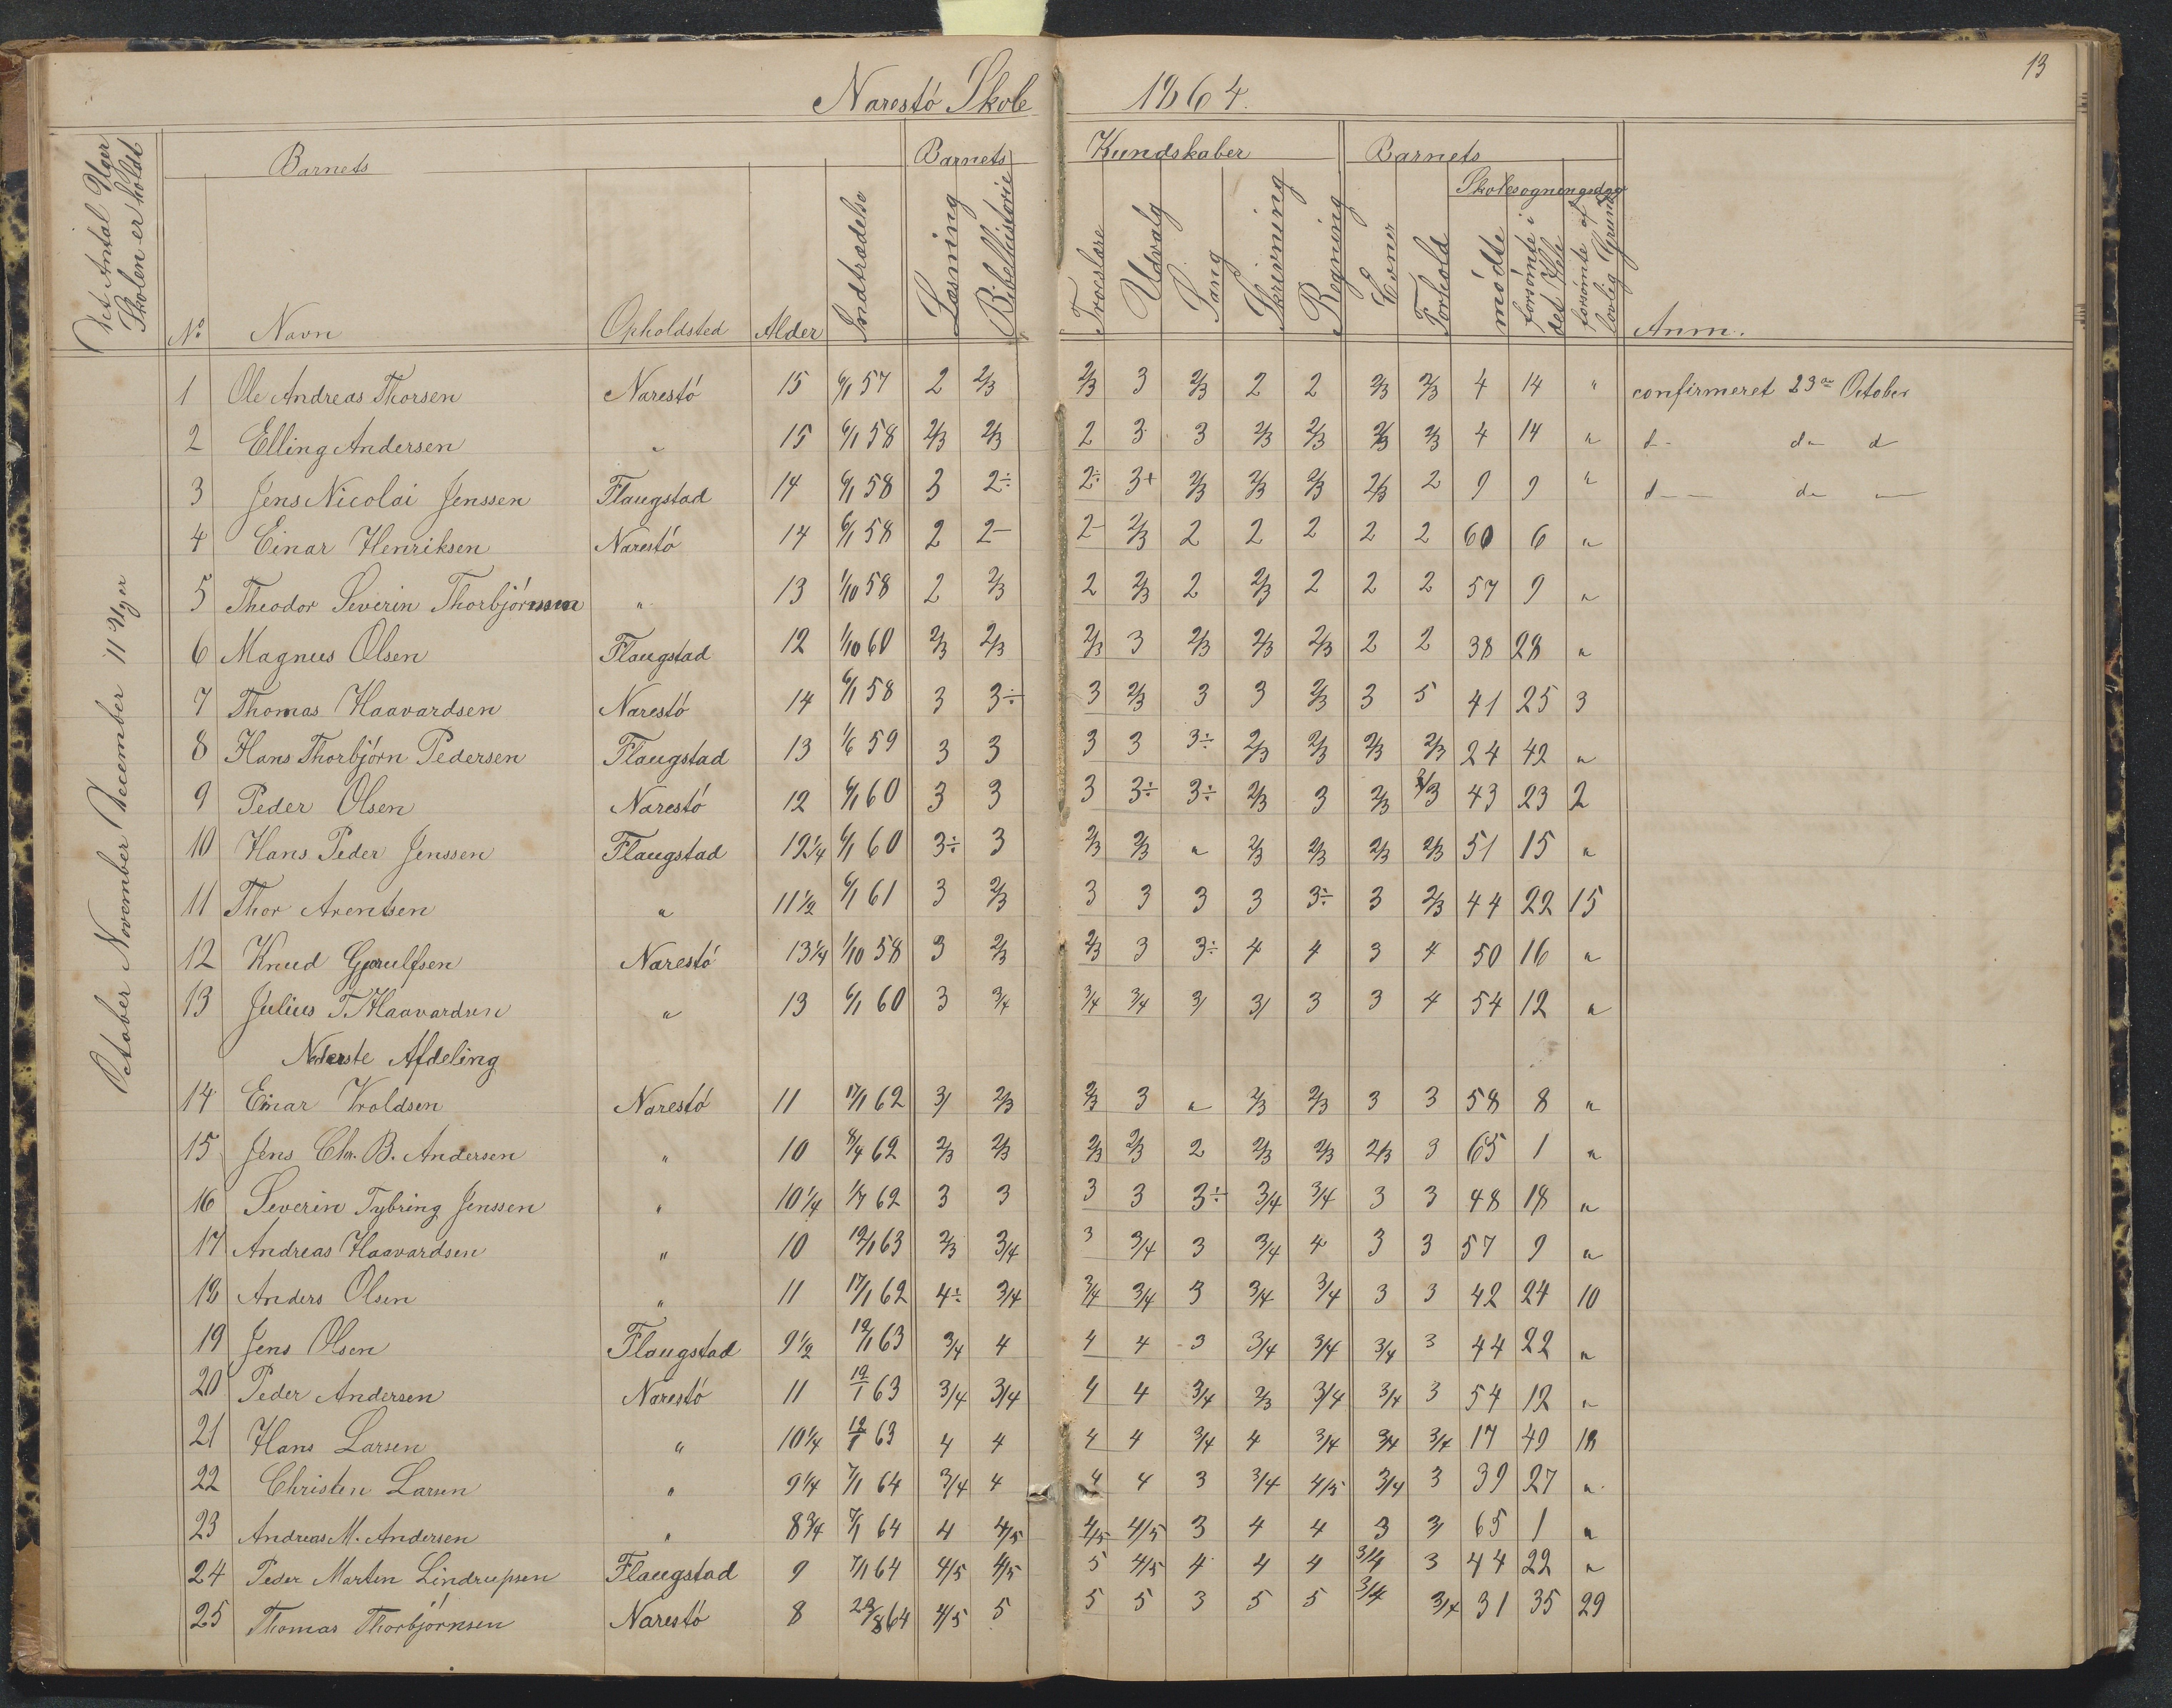 13
Narestö Skole 1864.
Det Antal Uger
Skolen er holdt
Barnets
Barnets
Kundskaber
Barnets
Skolesøgningsdage
No Navn Opholdsted Alder Indtrædelse Læsning Bibelhistorie Troeslære Udvalg Sang Skrivning Regning Evner Forhold mödte forsömte i det Hele forsömte af lovlig Grund Anm.
October November December 11 Uger
1 Ole Andreas Thorsen Narestö 15 6/1 57 2 2/3 2/3 3 2/3 2 2 2/3 2/3 4 14 " confirmeret 23de October
2 Elling Andersen " 15 6/1 58 2/3 2/3 2 3 3 2/3 2/3 2/3 2/3 4 14 " d- do d
3 Jens Nicolai Jenssen Flaugstad 14 6/1 58 3 2÷ 2÷ 3+ 2/3 2/3 2/3 2/3 2 9 9 " d- do —
4 Einar Henriksen Narestö 14 6/1 58 2 2- 2- 2/3 2 2 2 2 2 60 6 "
5 Theodor Severin Thorbjörnsen " 13 1/10 58 2 2/3 2 2/3 2 2/3 2 2 2 57 9 "
6 Magnus Olsen Flaugstad 12 1/10 60 2/3 2/3 2/3 3 2/3 2/3 2/3 2 2 38 28 "
7 Thomas Haavardsen Narestö 14 6/1 58 3 3÷ 3 2/3 3 3 2/3 3 5 41 25 3
8 Hans Thorbjörn Pedersen Flaugstad 13 1/6 59 3 3 3 3 3÷ 2/3 2/3 2/3 2/3 24 42 "
9 Peder Olsen Narestö 12 6/1 60 3 3 3 3÷ 3÷ 2/3 3 2/3 2/3 43 23 2
10 Hans Peder Jenssen Flaugstad 12 1/4 6/1 60 3÷ 3 2/3 2/3 " 2/3 2/3 2/3 2/3 51 15 "
11 Thor Arentsen " 11 1/2 6/1 61 3 2/3 3 3 3 3 3÷ 3 2/3 44 22 15
12 Knud Gjeruldsen Narestö 13 1/4 1/10 58 3 2/3 2/3 3 3÷ 4 4 3 4 50 16 "
13 Julius T. Haavardsen " 13 6/1 60 3 3/4 3/4 3/4 3 3 3 3 4 54 12 "
Nederste Afdeling
14 Einar Kroldsen Narestö 11 17/1 62 3 2/3 2/3 3 " 2/3 2/3 3 3 58 8 "
15 Jens Chr. B. Andersen " 10 8/4 62 2/3 2/3 2/3 2/3 2 2/3 2/3 2/3 3 65 1 "
16 Severin Tybring Jenssen " 10 1/4 1/7 62 3 3 3 3 3÷ 3/4 3/4 3 3 48 18 "
17 Andreas Haavardsen " 10 12/1 63 2/3 3/4 3 3/4 3 3/4 4 3 3 57 9 "
18 Anders Olsen " 11 17/1 62 4÷ 3/4 3/4 3/4 3 3/4 3/4 3 3 42 24 10
19 Jens Olsen Flaugstad 9 1/2 12/1 63 3/4 4 4 4 3 3/4 3/4 3/4 3 44 22 "
20 Peder Andersen Narestö 11 12/1 63 3/4 3/4 4 4 3/4 2/3 3/4 3/4 3 54 12 "
21 Hans Larsen " 10 1/4 12/1 63 4 4 4 4 3/4 4 3/4 3/4 3/4 17 49 18
22 Christen Larsen " 9 1/4 7/1 64 3/4 4 4 4 3 3/4 4/5 3/4 3 39 27 "
23 Andreas M. Andersen " 8 3/4 7/1 64 4 4/5 4/5 4/5 3 4 4 3 3 65 1 "
24 Peder Marten Lindrupsen Flaugstad 9 7/1 64 4/5 4/5 5 4/5 4 4 4 3/4 3 44 22 "
25 Thomas Thorbjörnsen Narestö 8 23/8 64 4/5 5 5 5 3 5 5 3/4 3/4 31 35 29